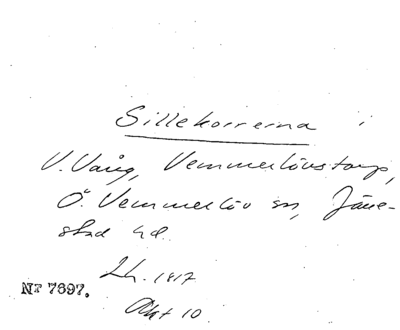 Sillekorrerna i
V. Vång, Vemmerlövstorp,
Ö. Vemmerlöv sn, Järre-
stad hd.
Lh. 1817
Akt 10
NR 7897.